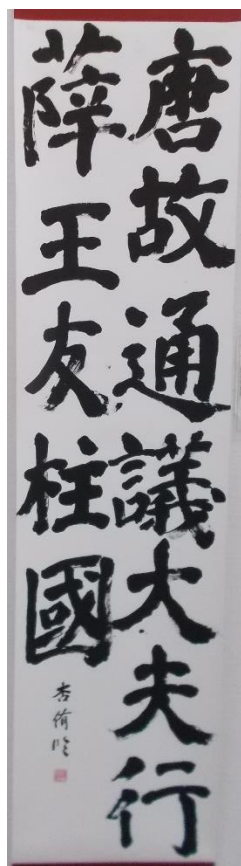 唐故通議大夫行
薛王友柱國